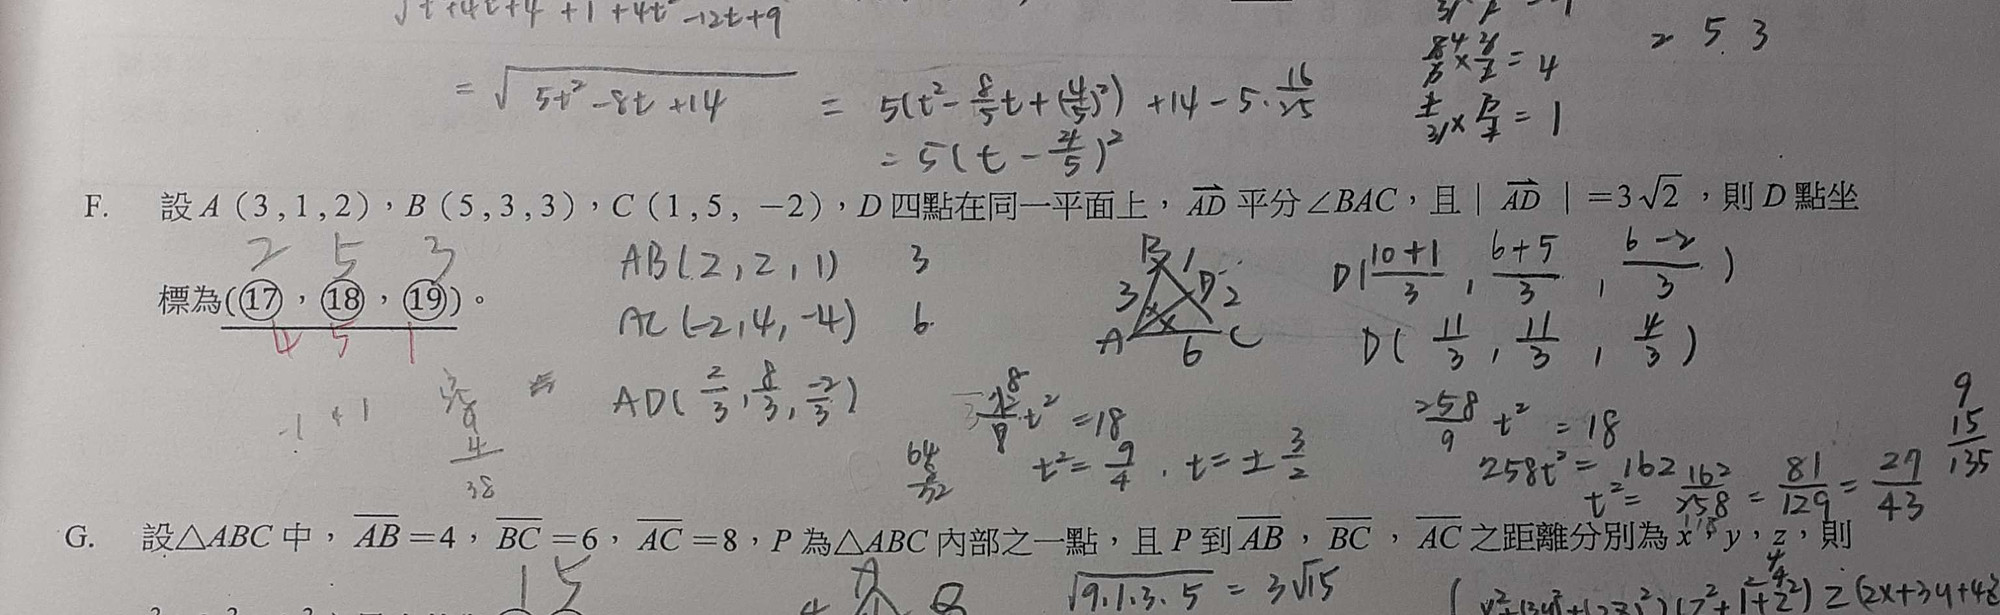 √t²+4t+4+1+4t²-12t+9
= √5t²-8t+14 = 5(t²-8/5t+(4/5)²)+14-5·16/25
= 5(t-4/5)²
= 4
= 1
2 5 3
F. 設A(3,1,2),B(5,3,3),C(1,5,-2),D四點在同一平面上,AD平分∠BAC,且|AD|=3√2,則D點坐
標為(⑰,⑱,⑲)。
2 5 3
4 5 1
AB(2,2,1) 3
AC(-2,4,-4) 6
AD(2/3,8/3,-2/3)
B 1 D 2
3
A 6 C
D(10+1/3,6+5/3,6-2/3)
D(11/3,11/3,4/3)
t²=18
t²=9/4,t=±3/2
258/9 t²=18
258t²=162
t²=162/258=81/129=27/43
9
15
135
-1 +1
4
38
64
G. 設△ABC中,AB=4,BC=6,AC=8,P為△ABC內部之一點,且P到AB,BC,AC之距離分別為x,y,z,則
15
A
4 8
√9·1·3·5 = 3√15